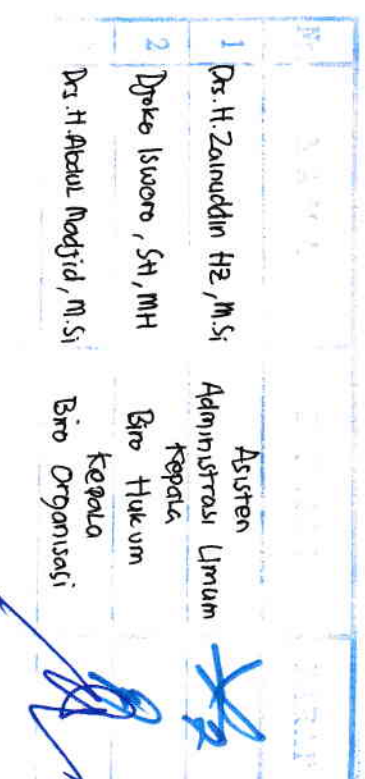 1 Drs. H. Zainuddin HZ, M.Si Asisten
Administrasi Umum
2 Djoko Isworo, SH, MH Kepala
Biro Hukum
Drs. H. Abdul Madjid, M.Si Kepala
Biro Organisasi